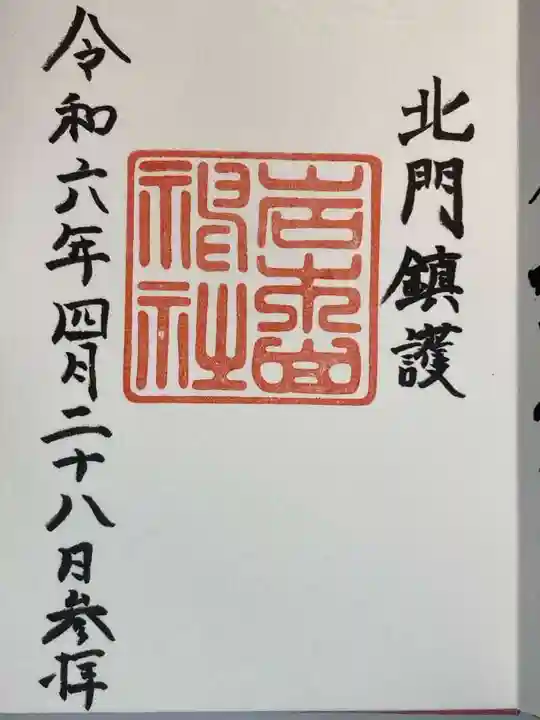 北門鎮護
岩木山
神社
令和六年四月二十八日参拝